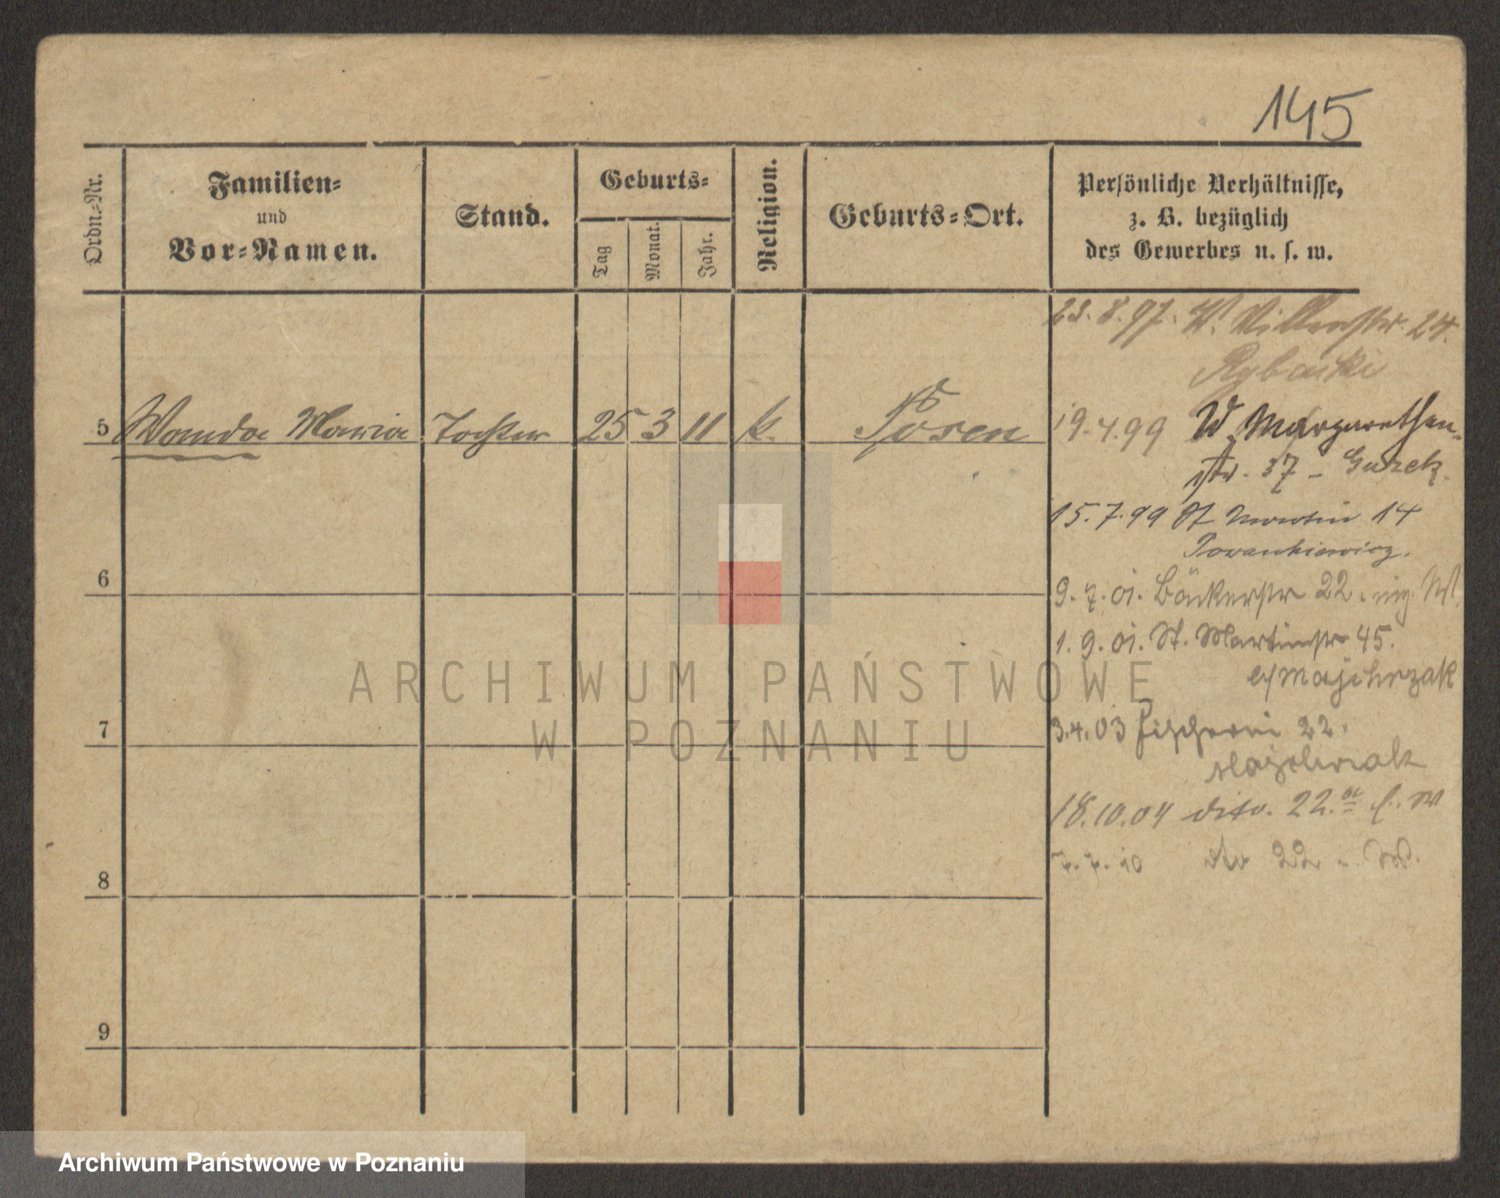 145
Ordn.-Nr.
Familien-
und
Vor-Namen.
Stand.
Geburts-
Tag
Monat.
Jahr.
Religion.
Geburts-Ort.
Persönliche Verhältnisse,
z. B. bezüglich
des Gewerbes u. s. w.
23.8.97. W. 24.
Rybacki
5 Wanda Maria Tochter 25 3 11 k. Posen
19.4.99 W. Margarethen-
str. 37 -
15.7.99 St Martin 14
6
9.7.01. Bäckerstr 22.
1.9.01. St. Martinstr 45.
Majchrzak
7
3.4.03 Fischerei 22.
18.10.04 dito. 22.
8
7.7.10 dto 22
9
ARCHIWUM PAŃSTWOWE
W POZNANIU
Archiwum Państwowe w Poznaniu